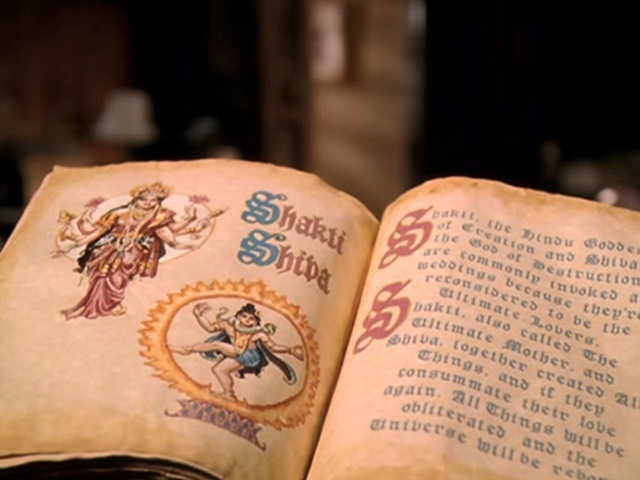 Shakti
Shiva
Shakti, the Hindu Goddess
of Creation and Shiva
the God of Destruction
are commonly invoked a
weddings because they're
reconsidered to be the
Ultimate Lovers.
Shakti, also called The
Ultimate Mother, and
Shiva, together created All
Things, and if they
consummate their love
again, All Things will be
obliterated and the
Universe will be rebor